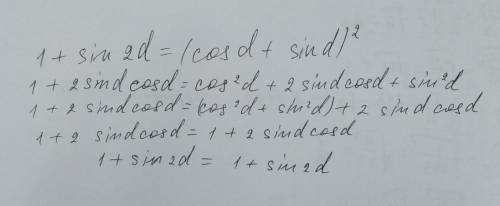 1 + sin 2d = (cos d + sin d)²
1 + 2 sin d cos d = cos²d + 2 sin d cos d + sin²d
1 + 2 sin d cos d = (cos²d + sin²d) + 2 sin d cos d
1 + 2 sin d cos d = 1 + 2 sin d cos d
1 + sin 2d = 1 + sin 2d